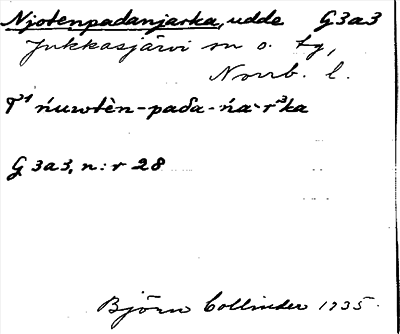 Njotenpadanjarka, udde G3a3
Jukkasjärvi sn o. tg,
Norrb. l.
T¹ ńuwtèn-paδa-ńa·r³ka
G 3a3, n:r 28
Björn Collinder 1935.